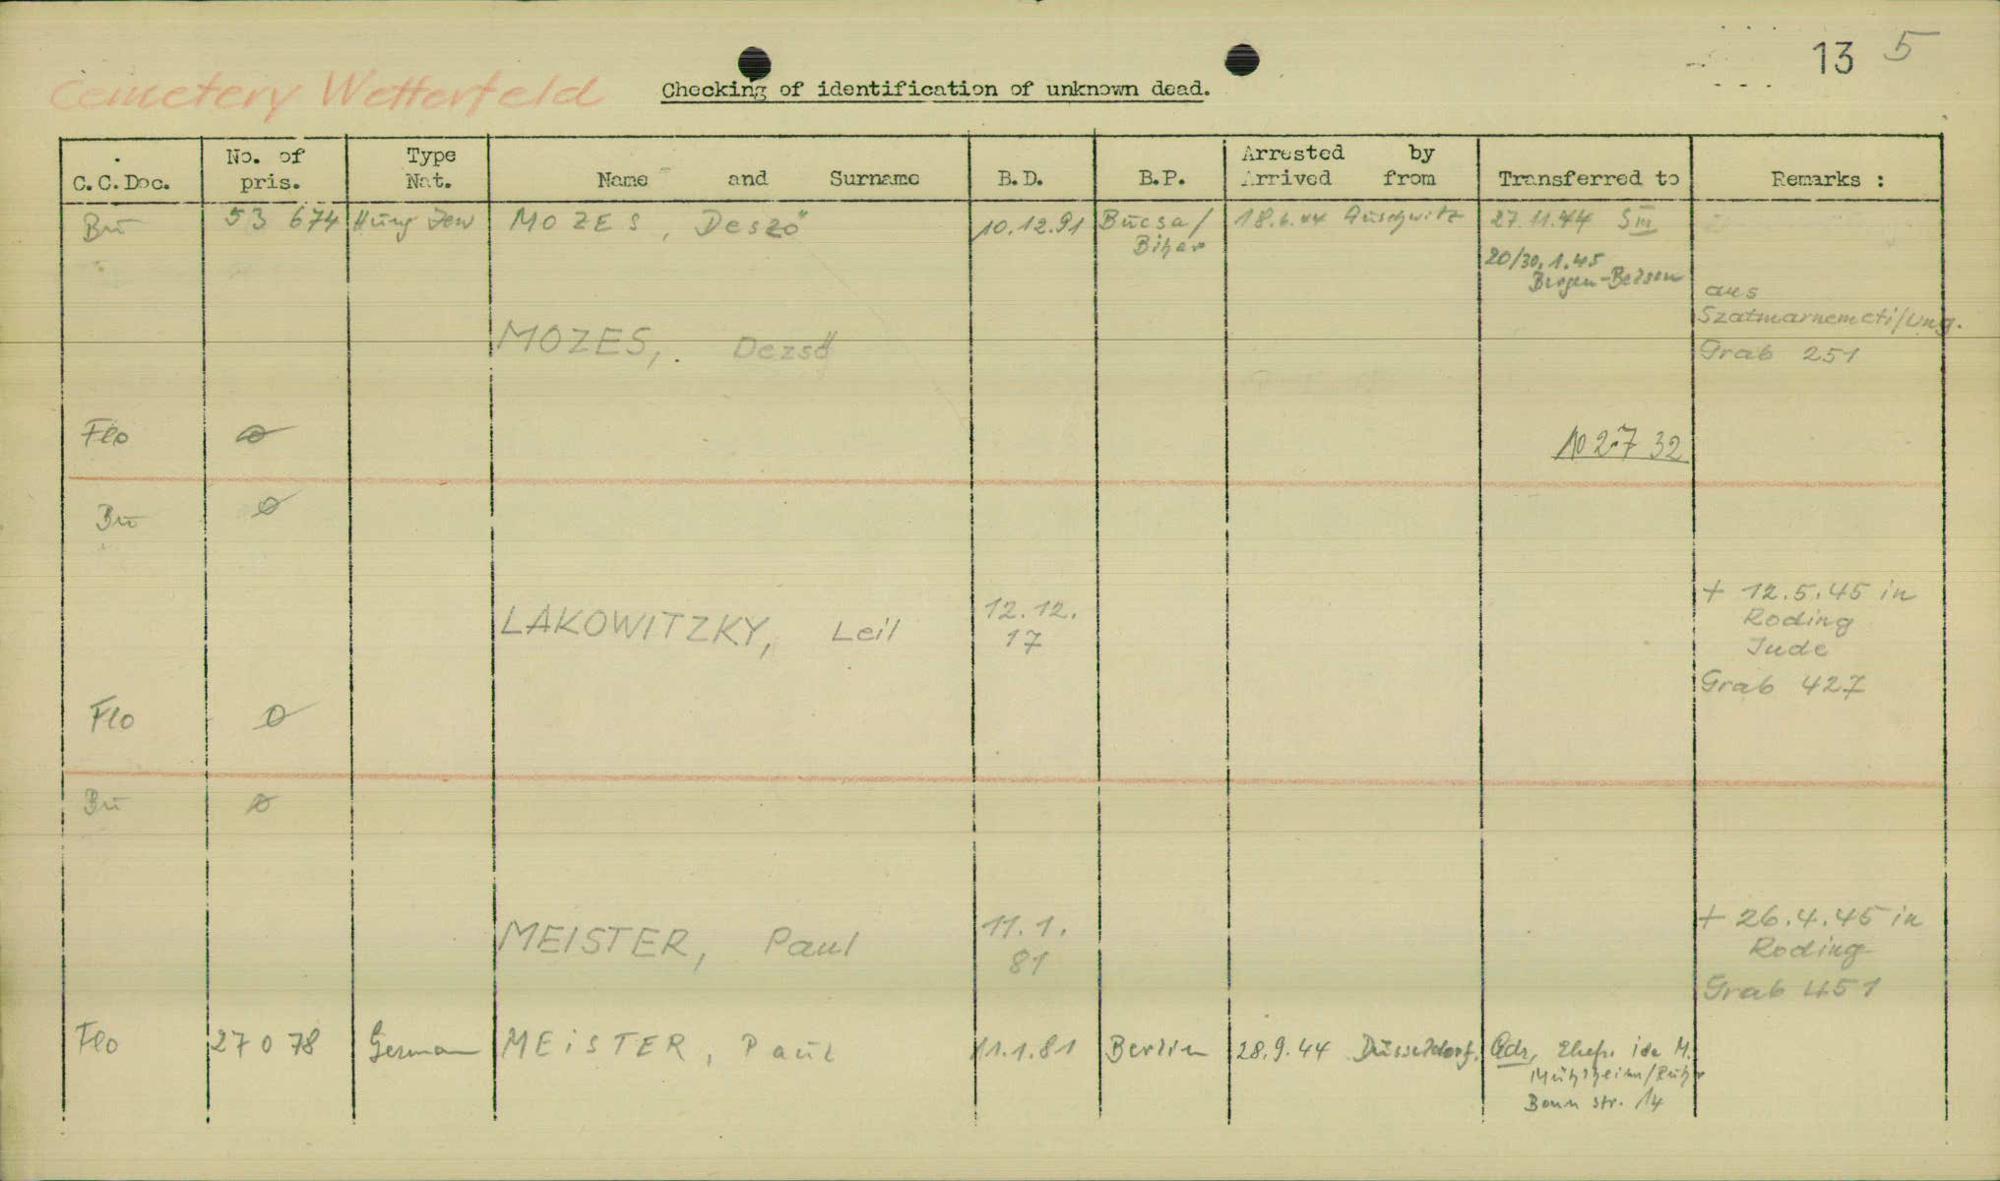 13 5
Cemetery Wetterfeld
Checking of identification of unknown dead.
C.C.Doc. No. of pris. Type Nat. Name and Surname B.D. B.P. Arrested by Arrived from Transferred to Remarks :
Bu 53 674 Hung Jew MOZES, Deszö 10.12.91 Bucsa/ 18.6.44 Auschwitz 27.11.44 SIII
Bihar
20/30.1.45
Bergen-Belsen
aus
Szatmarnemeti/Ung.
MOZES, Dezső
Grab 251
Flo ø
10 2.7 32
Bu ø
+ 12.5.45 in
LAKOWITZKY, Leil 12.12.
17
Roding
Jude
Grab 427
Flo ø
Bu ø
+ 26.4.45 in
MEISTER, Paul 11.1.
81
Roding
Grab 451
Flo 27 0 78 German MEiSTER, Paul 11.1.81 Berlin 28.9.44 Düsseldorf. Adr, Ehefr. Ida M.
Mühlheim/Ruhr
Bonn str. 14